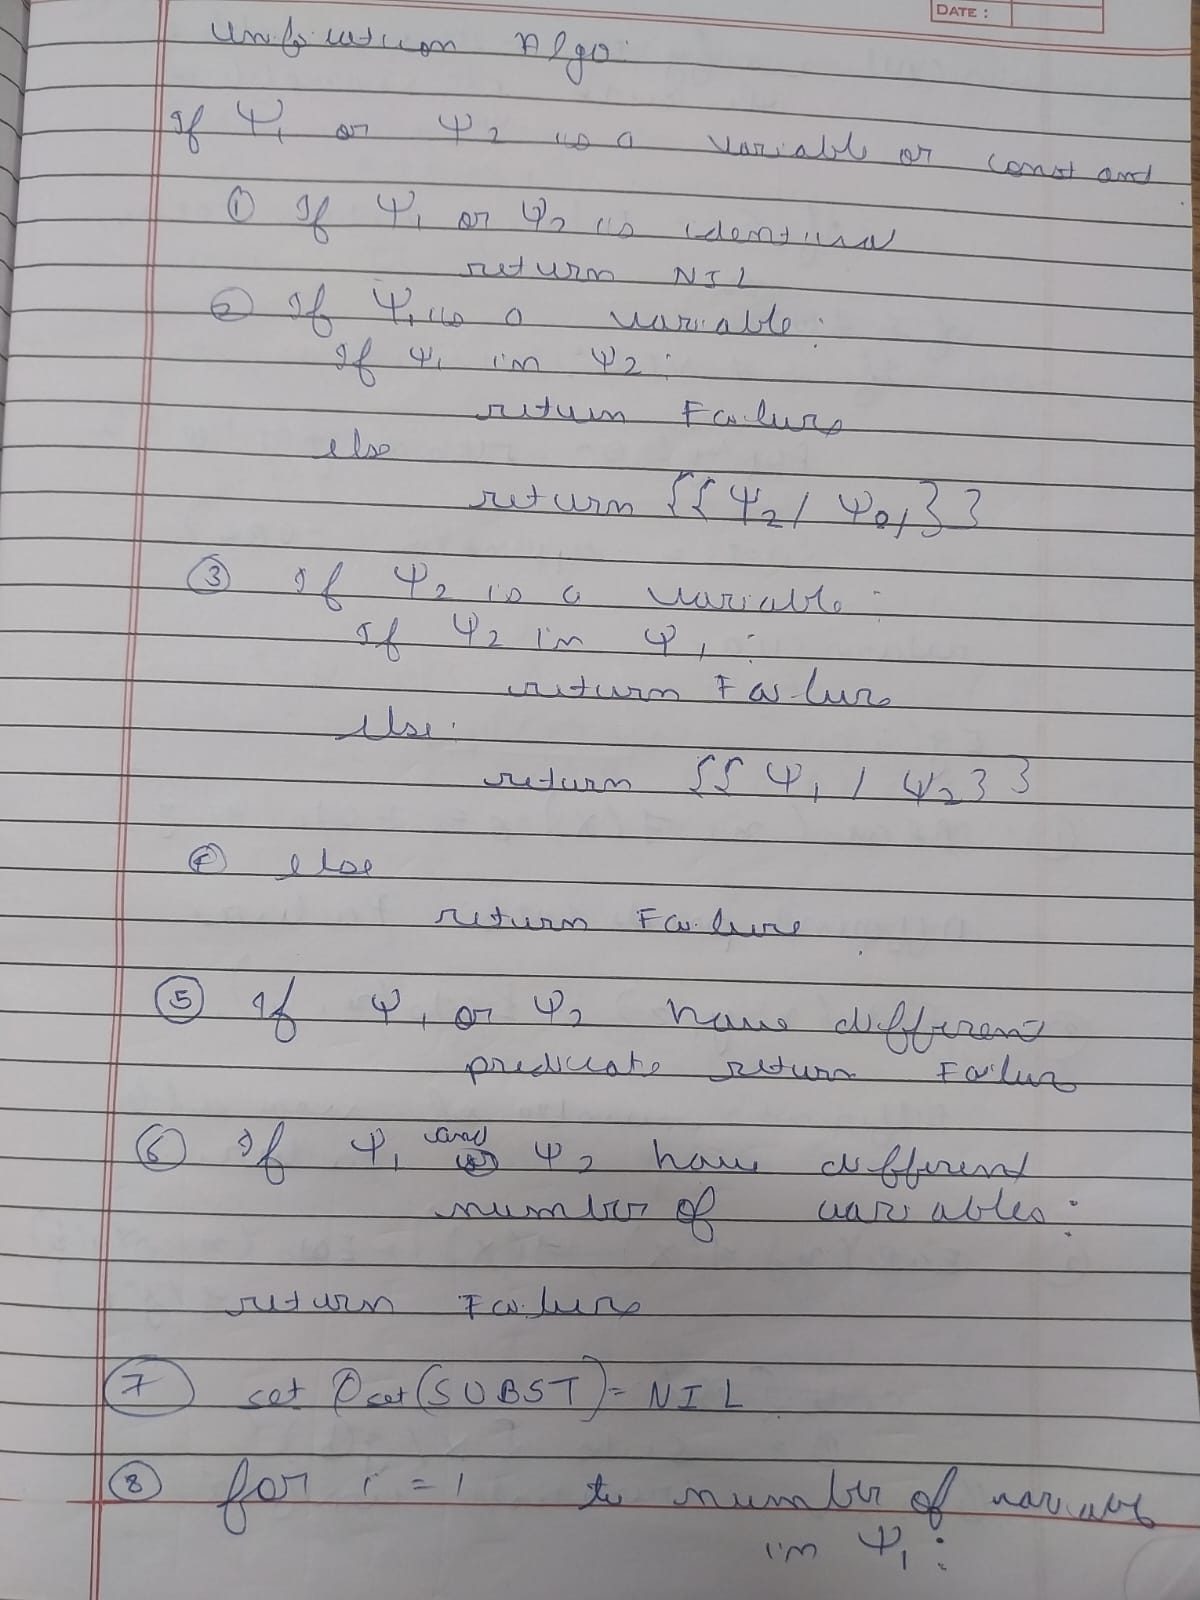 DATE :
Unification Algo:
If Ψ1 or Ψ2 is a variable or const and
① If Ψ1 or Ψ2 is identical
return NIL
② If Ψ1 is a variable:
If Ψ1 in Ψ2 :
return Failure
else
return {{Ψ2/ Ψ1}}
③ If Ψ2 is a variable :
If Ψ2 in Ψ1 :
return Failure
else:
return {{ Ψ1 / Ψ2}}
④ else
return Failure
⑤ If Ψ1 or Ψ2 have different
predicate return Failure
⑥ If Ψ1 and Ψ2 have different
number of variables:
return Failure
⑦ set set(SUBST) = NIL
⑧ for i = 1 to number of variable
in Ψ1 :